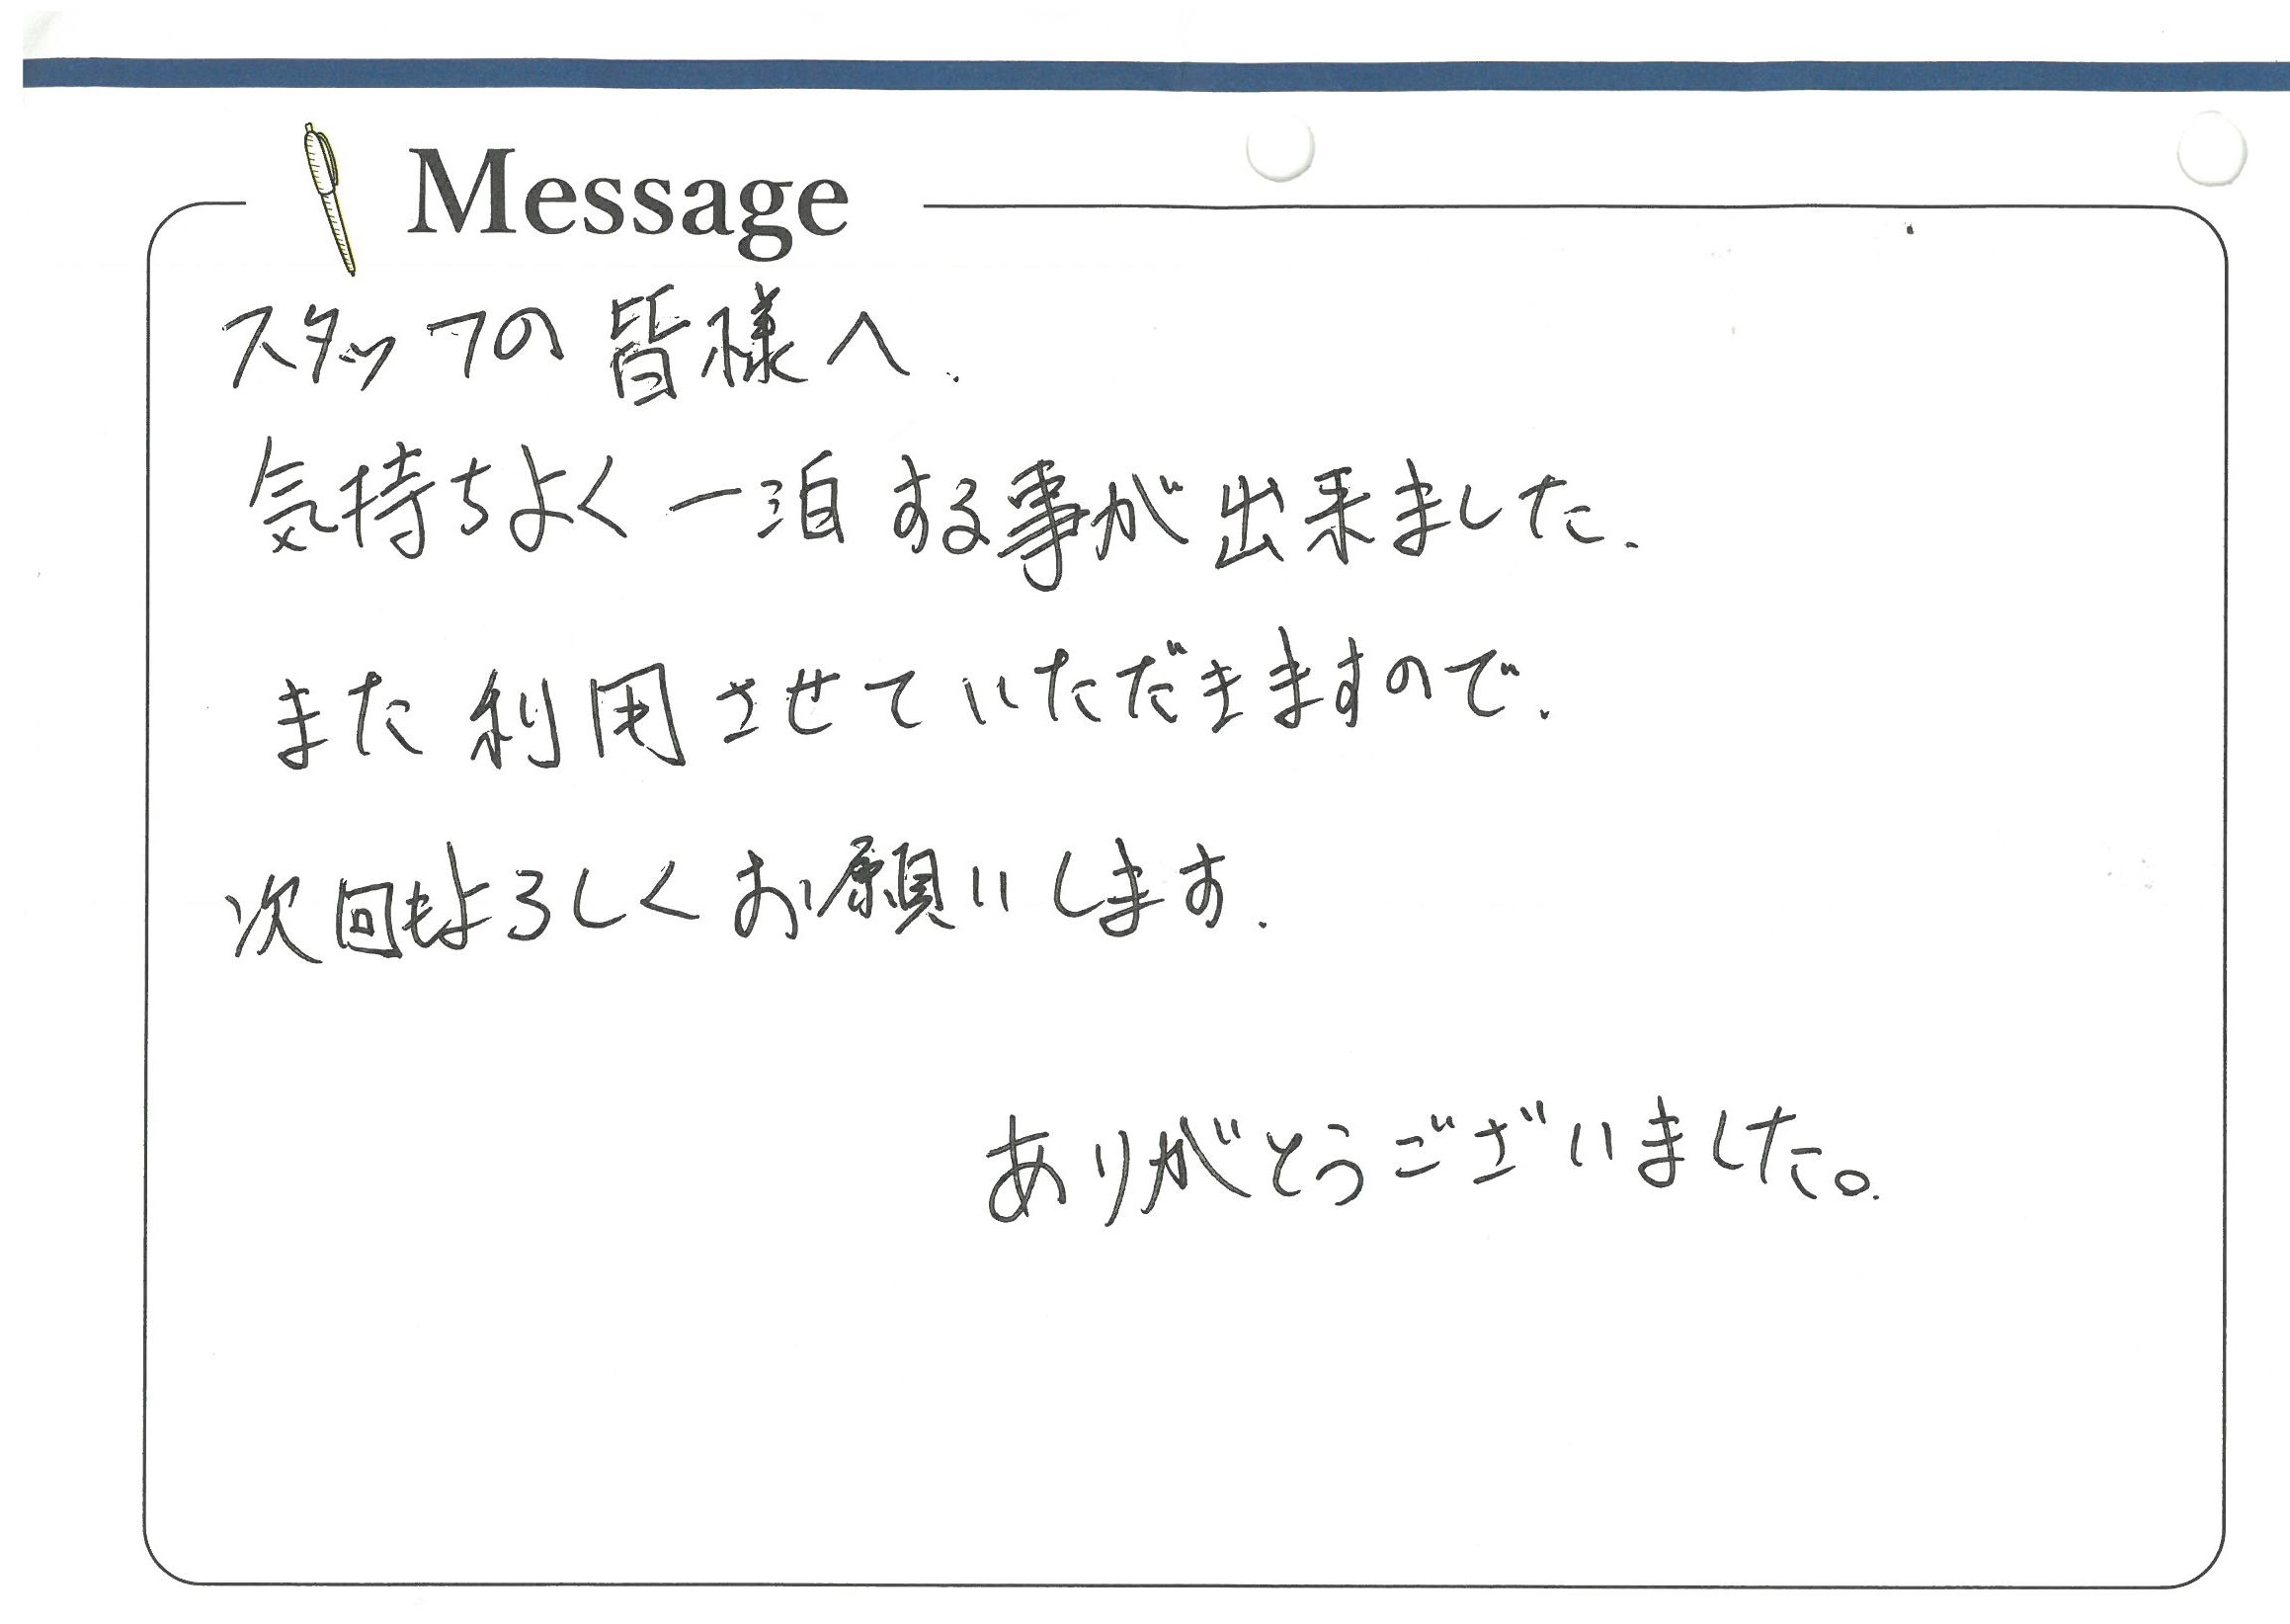 Message
スタッフの皆様へ.
気持ちよく一泊する事が出来ました.
また利用させていただきますので.
次回もよろしくお願いします.
ありがとうございました。